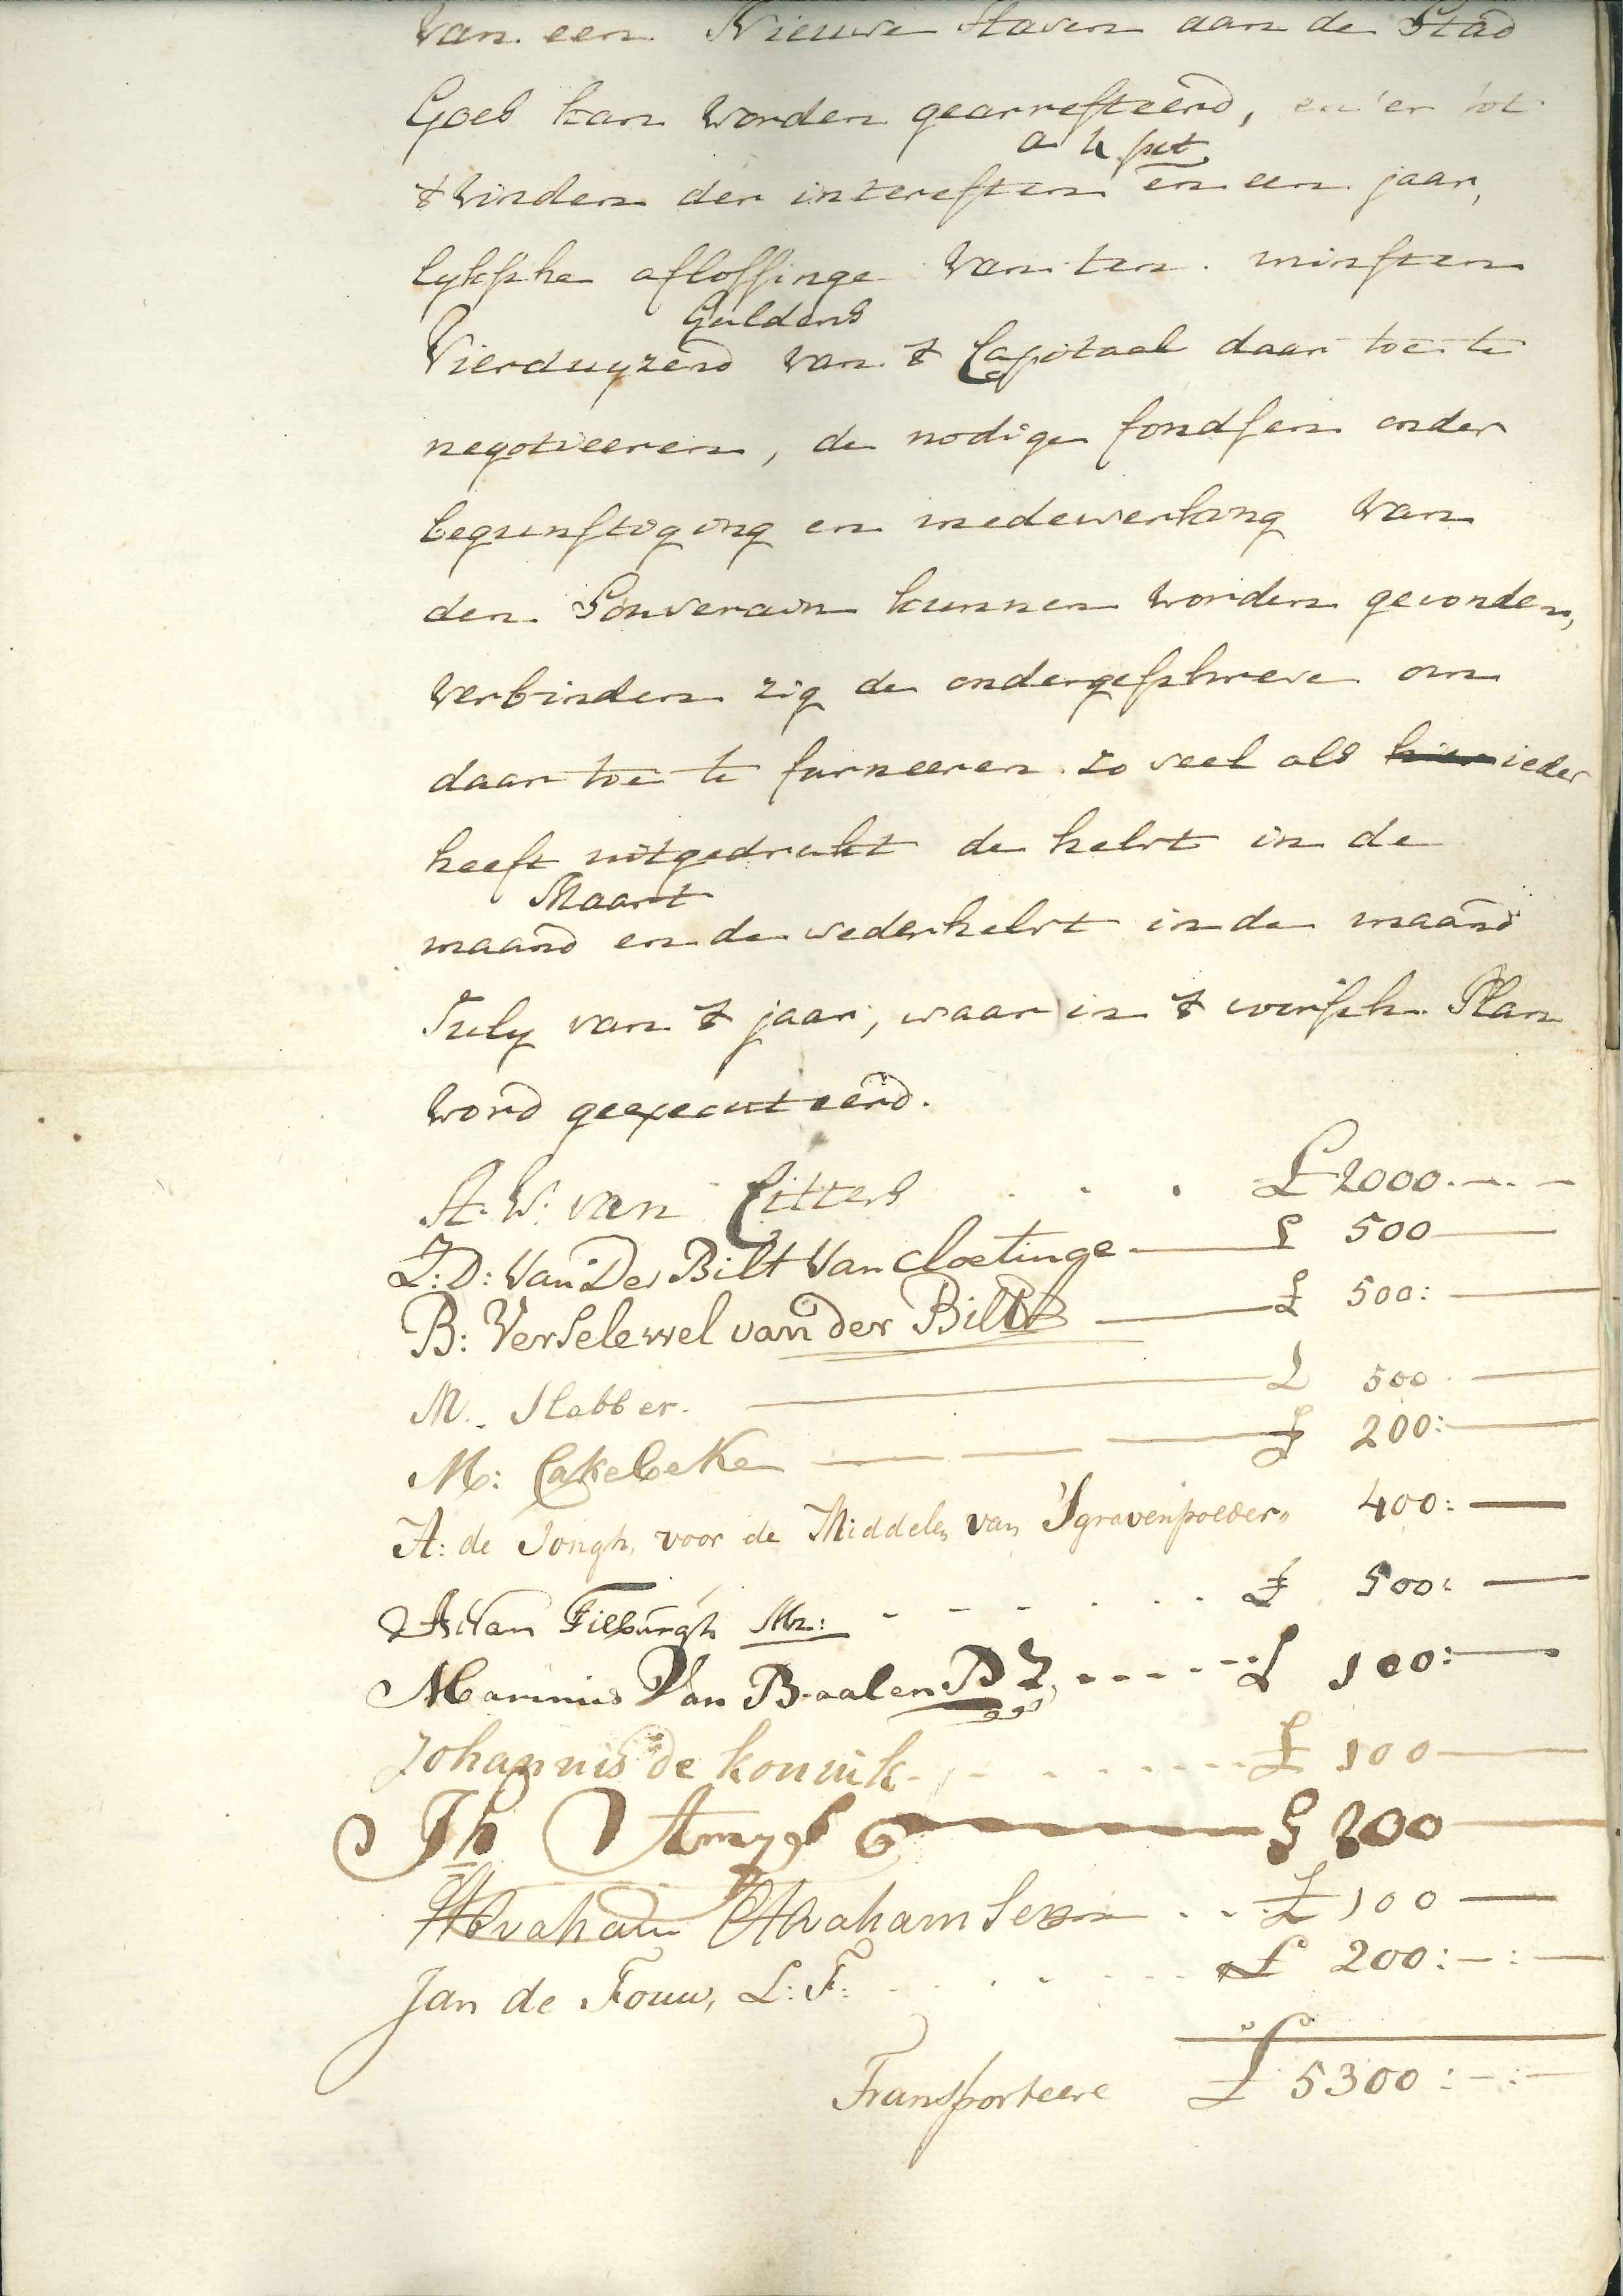 van een Nieuwe Haven aan de Stad
Goes kan worden gearresteerd, en 'er tot
a 4 pct
't vinden der interesten en een jaar,
lyksche aflossinge van ten minsten
Guldens
Vierduyzend van 't Capitaal daar toe te
negotieeren, de nodige fondsen onder
begunstiging en medewerking van
den Souverain kunnen worden gevonden,
verbinden zig de ondergeschreve om
daar toe te furneeren zo veel als hier ieder
heeft uitgedrukt de helvt in de
Maart
maand en de wederhelvt in de maand
July van 't jaar, waar in 't voorsch. Plan
word geexecuteerd.
A. W. van Citters . . . £ 2000.-.-
J: D: Van Der Bilt Van Cloetinge — £ 500 —
B: Verselewel van der Bilt — £ 500: —
M. Slabber. — £ 500. —
M: Cakebeke — £ 200: —
A: de Jongh, voor de Middelen van 'Sgravenpolder „ 400: —
A Van Tilburgh Mz: - - - . . . £ 500: —
Marinus Van Baalen BZ, - - - - - £ 100: —
Johannis de konink - - . . - - - £ 100 —
Jb — £ 200 —
Abraham Abrahamsen . . £ 100 —
Jan de Fouw, L: F: . . . . £ 200:-:-
Transporteere £ 5300:-:-